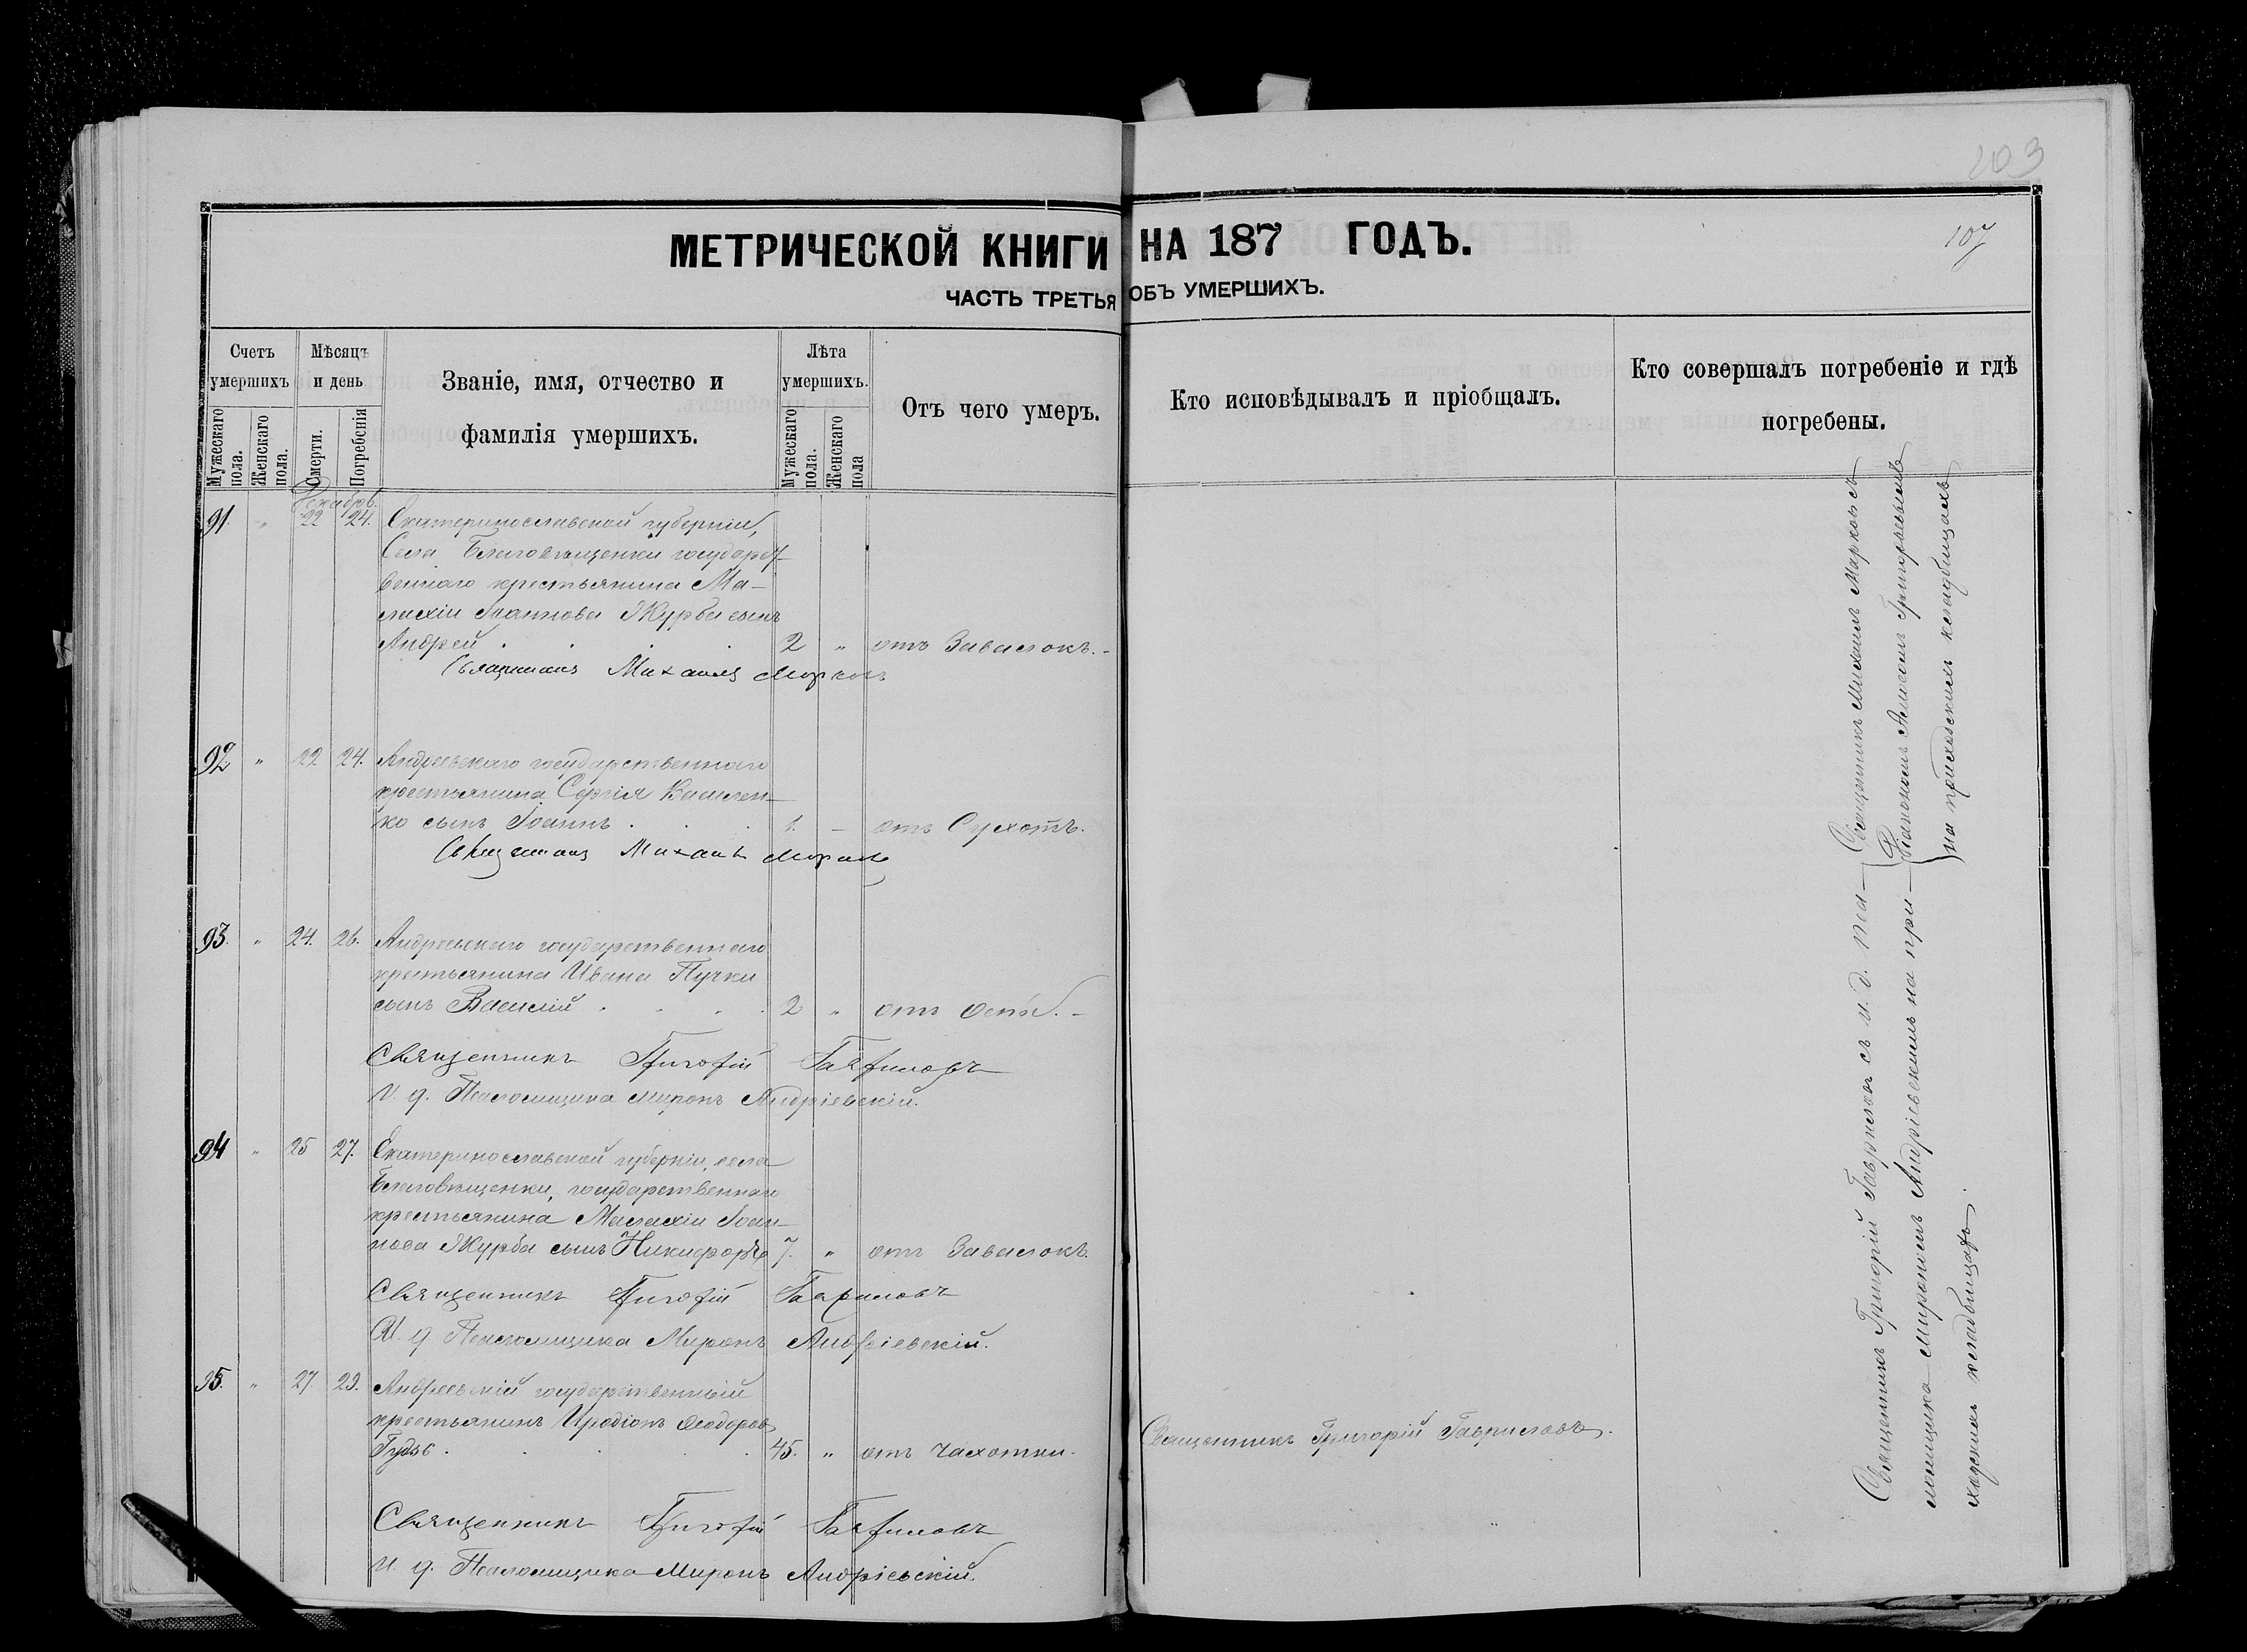 103
107
МЕТРИЧЕСКОЙ КНИГИ НА 187 ГОДЪ.
ЧАСТЬ ТРЕТЬЯ ОБЪ УМЕРШИХЪ.
Счетъ умершихъ
Мужескаго пола.
Женскаго пола.
Мѣсяцъ и день
Смерти.
Погребенія
Званіе, имя, отчество и
фамилія умершихъ.
Лѣта умершихъ.
Мужескаго пола.
Женскаго пола
Отъ чего умеръ.
Кто исповѣдывалъ и пріобщалъ.
Кто совершалъ погребеніе и гдѣ
погребены.
Декабрь.
91. " 22 24. Екатеринославской губерніи,
Села Благовѣщенки государст-
веннаго крестьянина Ма-
лахіи Іоаннова Журбы сынъ
Андрей . . . 2 " отъ Завалокъ. -
Священникъ Михаилъ Марковъ
92 " 22 24. Андреевскаго государственнаго
крестьянина Сергія Василен-
ко сынъ Іоаннъ . . . 1. - отъ Сухотъ.
Священникъ Михаилъ Марковъ
93. " 24. 26. Андреевскаго государственнаго
крестьянина Ивана Пучки
сынъ Василій . . . . 2 " отъ Оспы. -
Священникъ Григорій Гавриловъ
И. д. Псаломщика Миронъ Андріевскій.
94 " 25 27. Екатеринославской губерніи, села
Благовѣщенки, государственнаго
крестьянина Малахіи Іоан-
нова Журбы сынъ Никифоръ 7. " отъ Завалокъ.
Священникъ Григорій Гавриловъ
И. д Псаломщика Миронъ Андріевскій.
95. " 27 29. Андреевскій государственный
крестьянинъ Иродіонъ Ѳеодоровъ
Гудзь . . . . 45. " отъ Чахотки. Священникъ Григорій Гавриловъ.
Священникъ Григорій Гавриловъ
И. д. Псаломщика Миронъ Андріевскій.
Священникъ Михаилъ Марковъ съ
Діакономъ Григорьевымъ
на приходскихъ кладбищахъ
Священникъ Григорій Гавриловъ съ и. д. пса-
ломщика Мирономъ Андріевскимъ на при-
ходскихъ кладбищахъ.